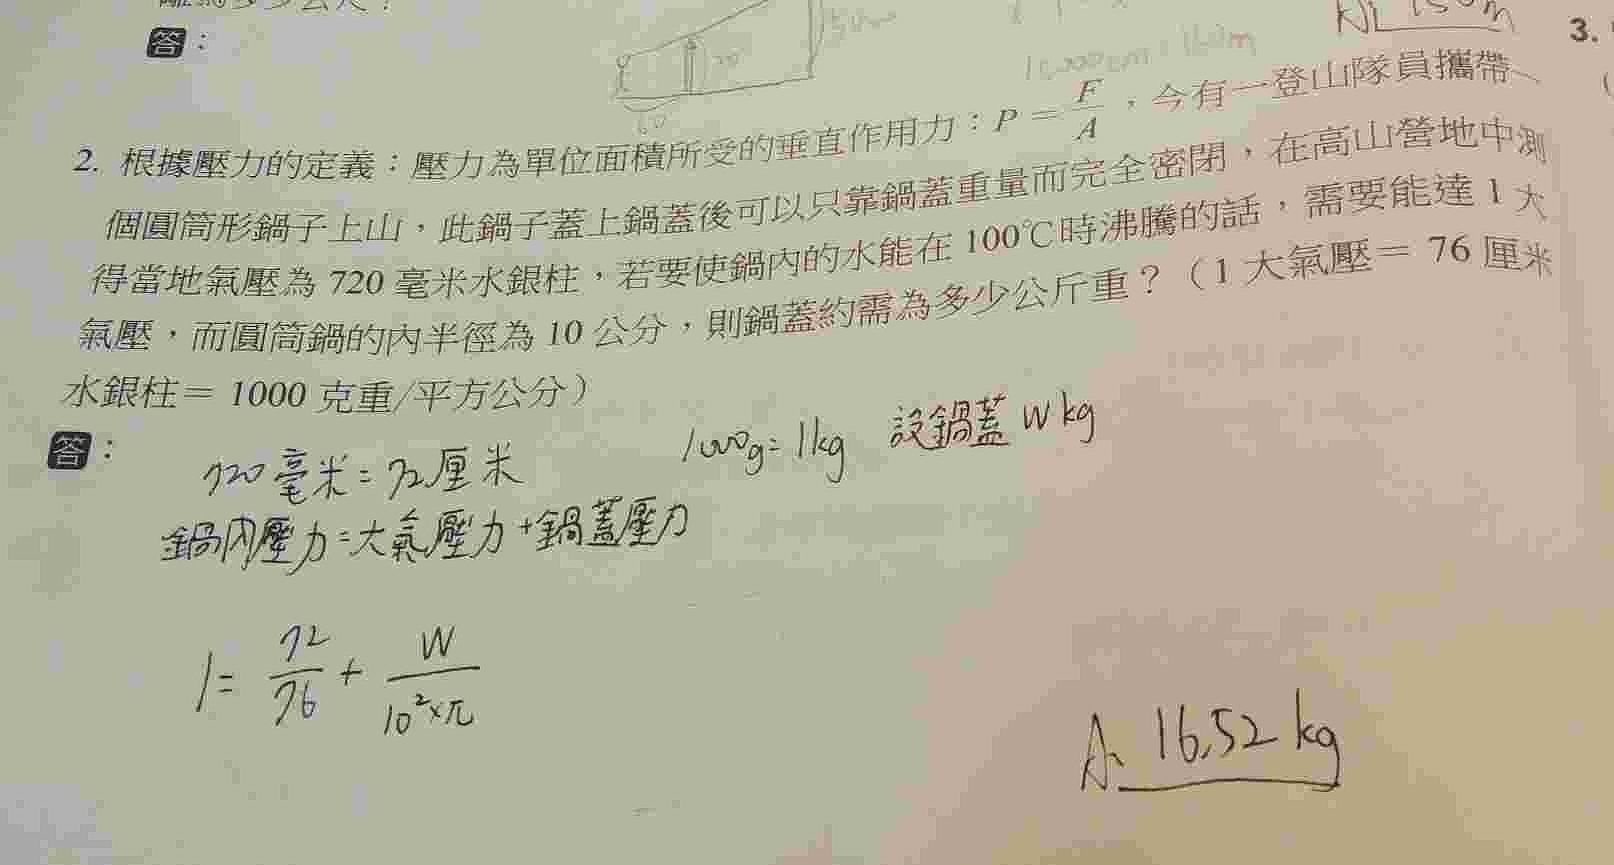 答：
50m
60
16000cm=160m
A: 150m
3.
2. 根據壓力的定義：壓力為單位面積所受的垂直作用力：P = F/A，今有一登山隊員攜帶一
個圓筒形鍋子上山，此鍋子蓋上鍋蓋後可以只靠鍋蓋重量而完全密閉，在高山營地中測
得當地氣壓為 720 毫米水銀柱，若要使鍋內的水能在 100℃時沸騰的話，需要能達 1 大
氣壓，而圓筒鍋的內半徑為 10 公分，則鍋蓋約需為多少公斤重？（1 大氣壓＝ 76 厘米
水銀柱＝ 1000 克重/平方公分）
答：
720毫米=72厘米
1000g=1kg 設鍋蓋 W kg
鍋內壓力=大氣壓力+鍋蓋壓力
1= 72/76 + W/10²×π
A: 16.52 kg